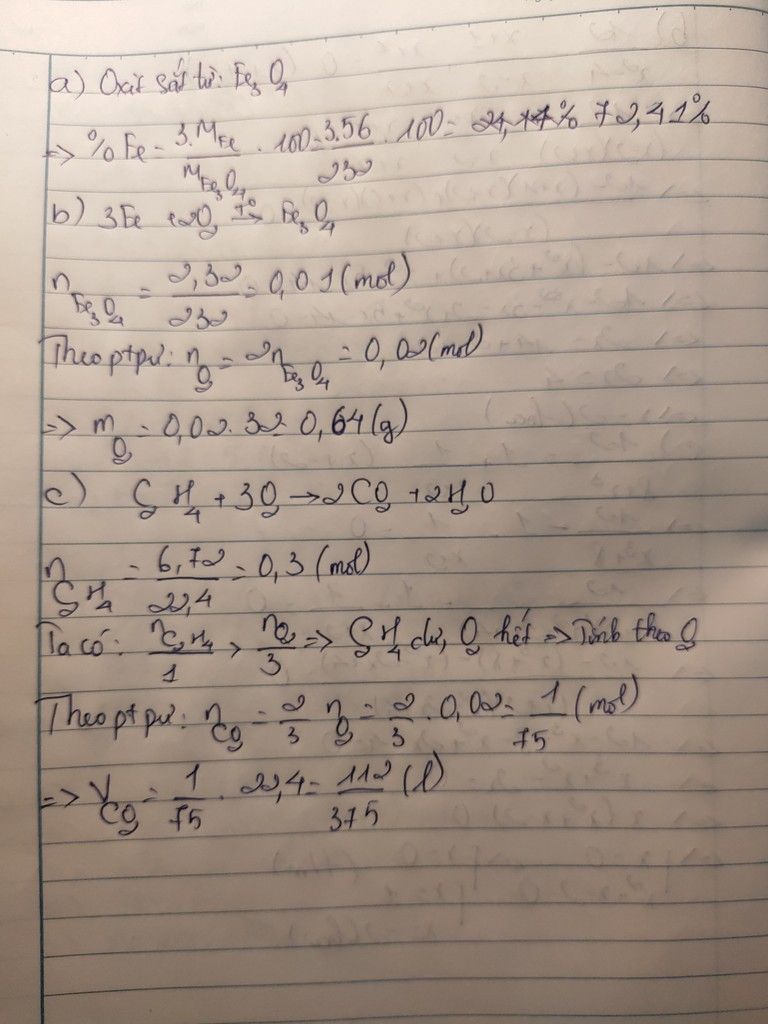 a) Oxit sắt từ: Fe₃O₄
=> %Fe = 3.M_Fe / M_Fe₃O₄ . 100 = 3.56 / 232 . 100 = 72,41%
b) 3Fe + 2O₂ -t°-> Fe₃O₄
n_Fe₃O₄ = 2,32 / 232 = 0,01 (mol)
Theo ptpư: n_O₂ = 2n_Fe₃O₄ = 0,02 (mol)
=> m_O₂ = 0,02.32 = 0,64 (g)
c) C₂H₄ + 3O₂ → 2CO₂ + 2H₂O
n_C₂H₄ = 6,72 / 22,4 = 0,3 (mol)
Ta có: n_C₂H₄ / 1 > n_O₂ / 3 => C₂H₄ dư, O₂ hết => Tính theo O₂
Theo ptpư: n_CO₂ = 2/3 n_O₂ = 2/3 . 0,02 = 1/75 (mol)
=> V_CO₂ = 1/75 . 22,4 = 112/375 (l)